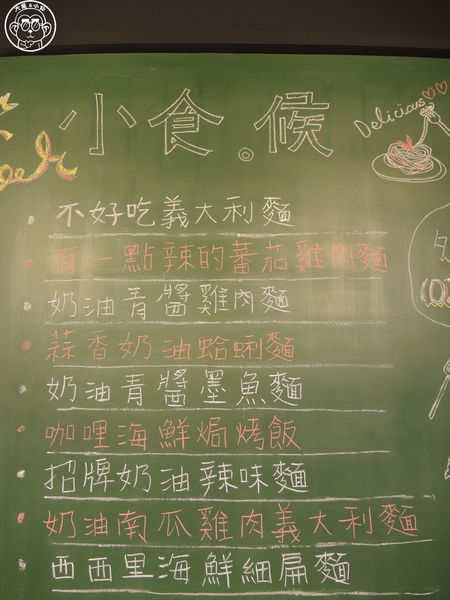 小食。候
Delicious
不好吃義大利麵
有一點辣的蕃茄雞肉麵
奶油青醬雞肉麵
蒜香奶油蛤蜊麵
奶油青醬墨魚麵
咖哩海鮮焗烤飯
招牌奶油辣味麵
奶油南瓜雞肉義大利麵
西西里海鮮細扁麵